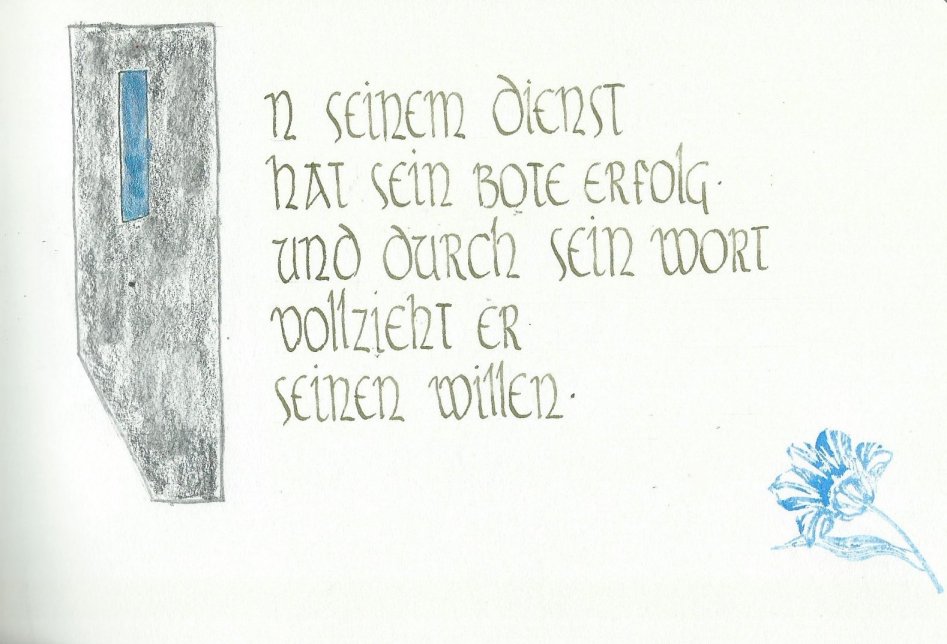 In seinem Dienst
hat sein Bote Erfolg.
und durch sein Wort
vollzieht er
seinen Willen.